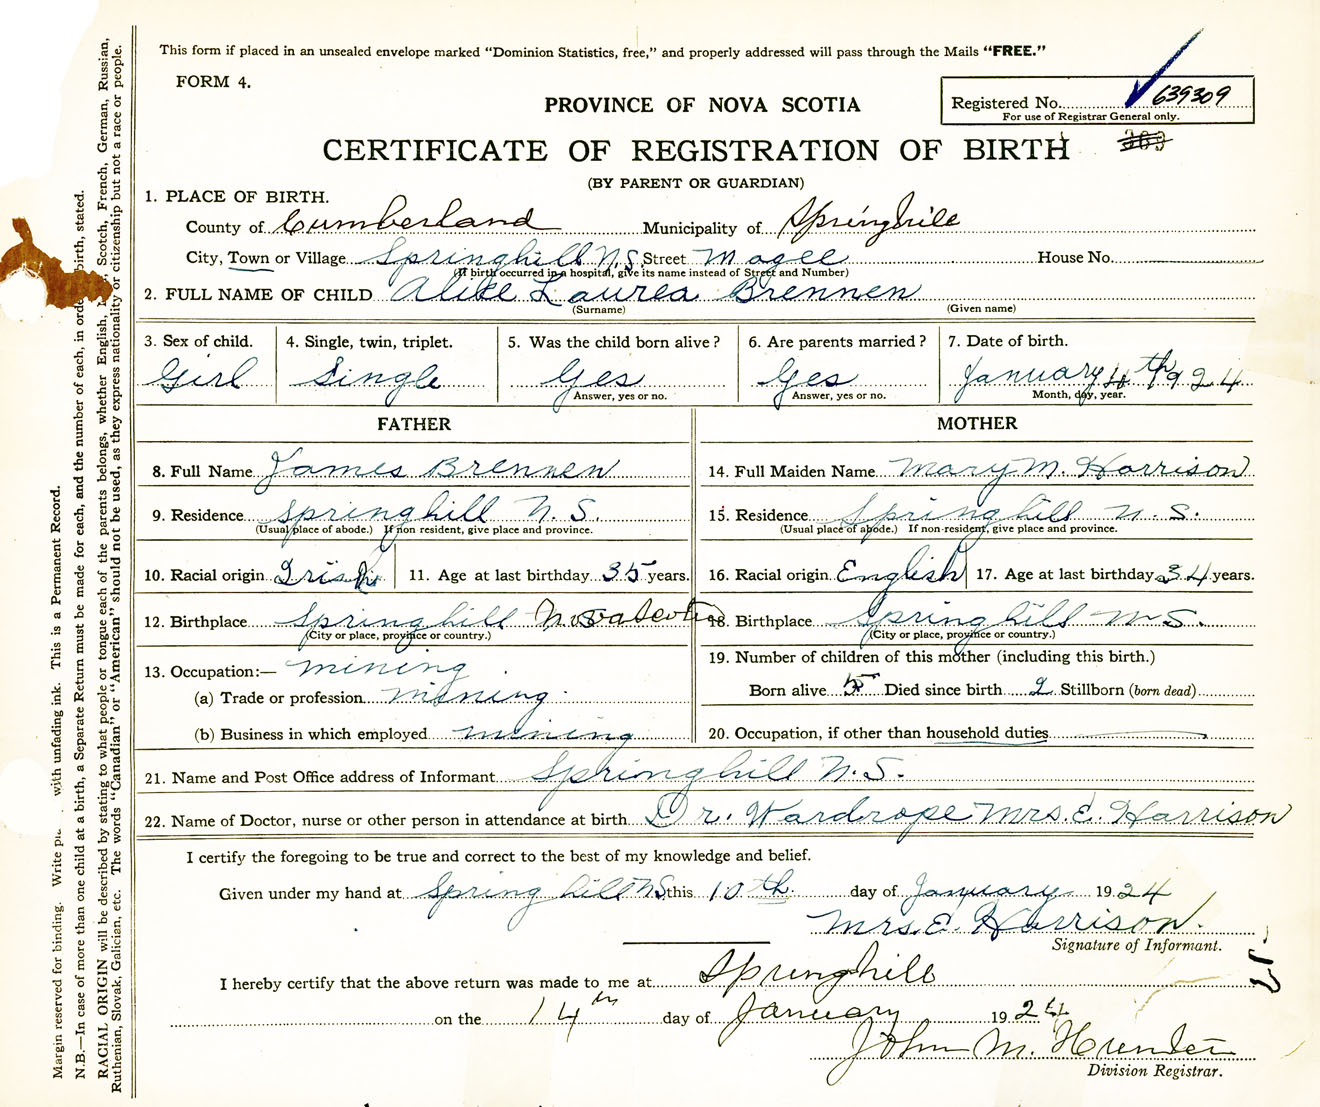 This form if placed in an unsealed envelope marked “Dominion Statistics, free,” and properly addressed will pass through the Mails “FREE.”
FORM 4.
Registered No. 639309
For use of Registrar General only.
PROVINCE OF NOVA SCOTIA
CERTIFICATE OF REGISTRATION OF BIRTH
(BY PARENT OR GUARDIAN)
1. PLACE OF BIRTH.
County of Cumberland Municipality of Springhill
City, Town or Village Springhill N.S. Street Magee House No.
(If birth occurred in a hospital, give its name instead of Street and Number)
2. FULL NAME OF CHILD Alice Laurea Brennen
(Surname) (Given name)
3. Sex of child. 4. Single, twin, triplet. 5. Was the child born alive? 6. Are parents married? 7. Date of birth.
Girl Single Yes Yes January 4th 1924
Answer, yes or no. Answer, yes or no. Month, day, year.
FATHER MOTHER
8. Full Name James Brennen 14. Full Maiden Name Mary M. Harrison
9. Residence Springhill N.S. 15. Residence Springhill N.S.
(Usual place of abode.) If non resident, give place and province. (Usual place of abode.) If non-resident, give place and province.
10. Racial origin Irish 11. Age at last birthday 35 years. 16. Racial origin English 17. Age at last birthday 34 years.
12. Birthplace Springhill Nova Scotia 18. Birthplace Springhill N.S.
(City or place, province or country.) (City or place, province or country.)
13. Occupation:— mining 19. Number of children of this mother (including this birth.)
(a) Trade or profession mining Born alive 5 Died since birth 2 Stillborn (born dead)
(b) Business in which employed mining 20. Occupation, if other than household duties
21. Name and Post Office address of Informant Springhill N.S.
22. Name of Doctor, nurse or other person in attendance at birth Dr. Wardrope Mrs. E. Harrison
I certify the foregoing to be true and correct to the best of my knowledge and belief.
Given under my hand at Spring hill N.S. this 10th day of January 1924
Mrs. E. Harrison.
Signature of Informant.
I hereby certify that the above return was made to me at Springhill
on the 14th day of January 1924
John M. Hunter
Division Registrar.
Margin reserved for binding. Write with unfading ink. This is a Permanent Record.
N.B.—In case of more than one child at a birth, a Separate Return must be made for each, and the number of each, in birth, stated.
RACIAL ORIGIN will be described by stating to what people or tongue each of the parents belongs, whether English, Scotch, French, German, Russian,
Ruthenian, Slovak, Galician, etc. The words “Canadian” or “American” should not be used, as they express nationality or citizenship but not a race or people.